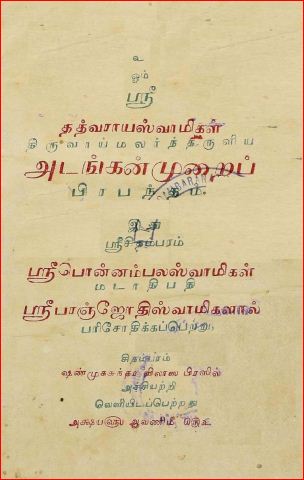 உ
ஓம்
ஸ்ரீ
தத்வராயஸ்வாமிகள்
திருவாய்மலர்ந்தருளிய
அடங்கன்முறைப்
பிரபந்தம்.
இது
ஸ்ரீசிதம்பரம்
ஸ்ரீபொன்னம்பலஸ்வாமிகள்
மடாதிபதி
ஸ்ரீபரஞ்ஜோதிஸ்வாமிகளால்
பரிசோதிக்கப்பெற்று,
சிதம்பரம்
ஷண்முகசுந்தர விலாஸ பிரஸில்
அச்சியற்றி
வெளியிடப்பெற்றது
அக்ஷய௵ ஆவணிமீ